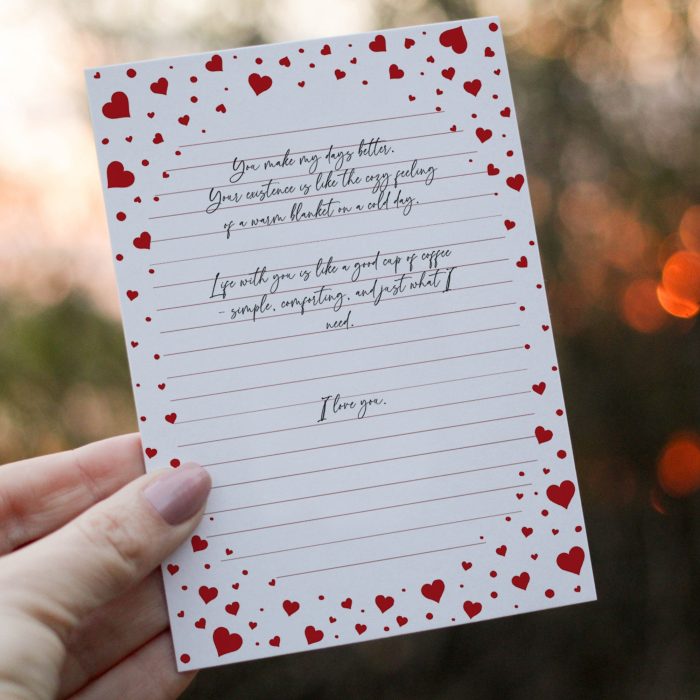 You make my days better.
Your existence is like the cozy feeling
of a warm blanket on a cold day.
Life with you is like a good cup of coffee
- simple, comforting, and just what I
need.
I love you.